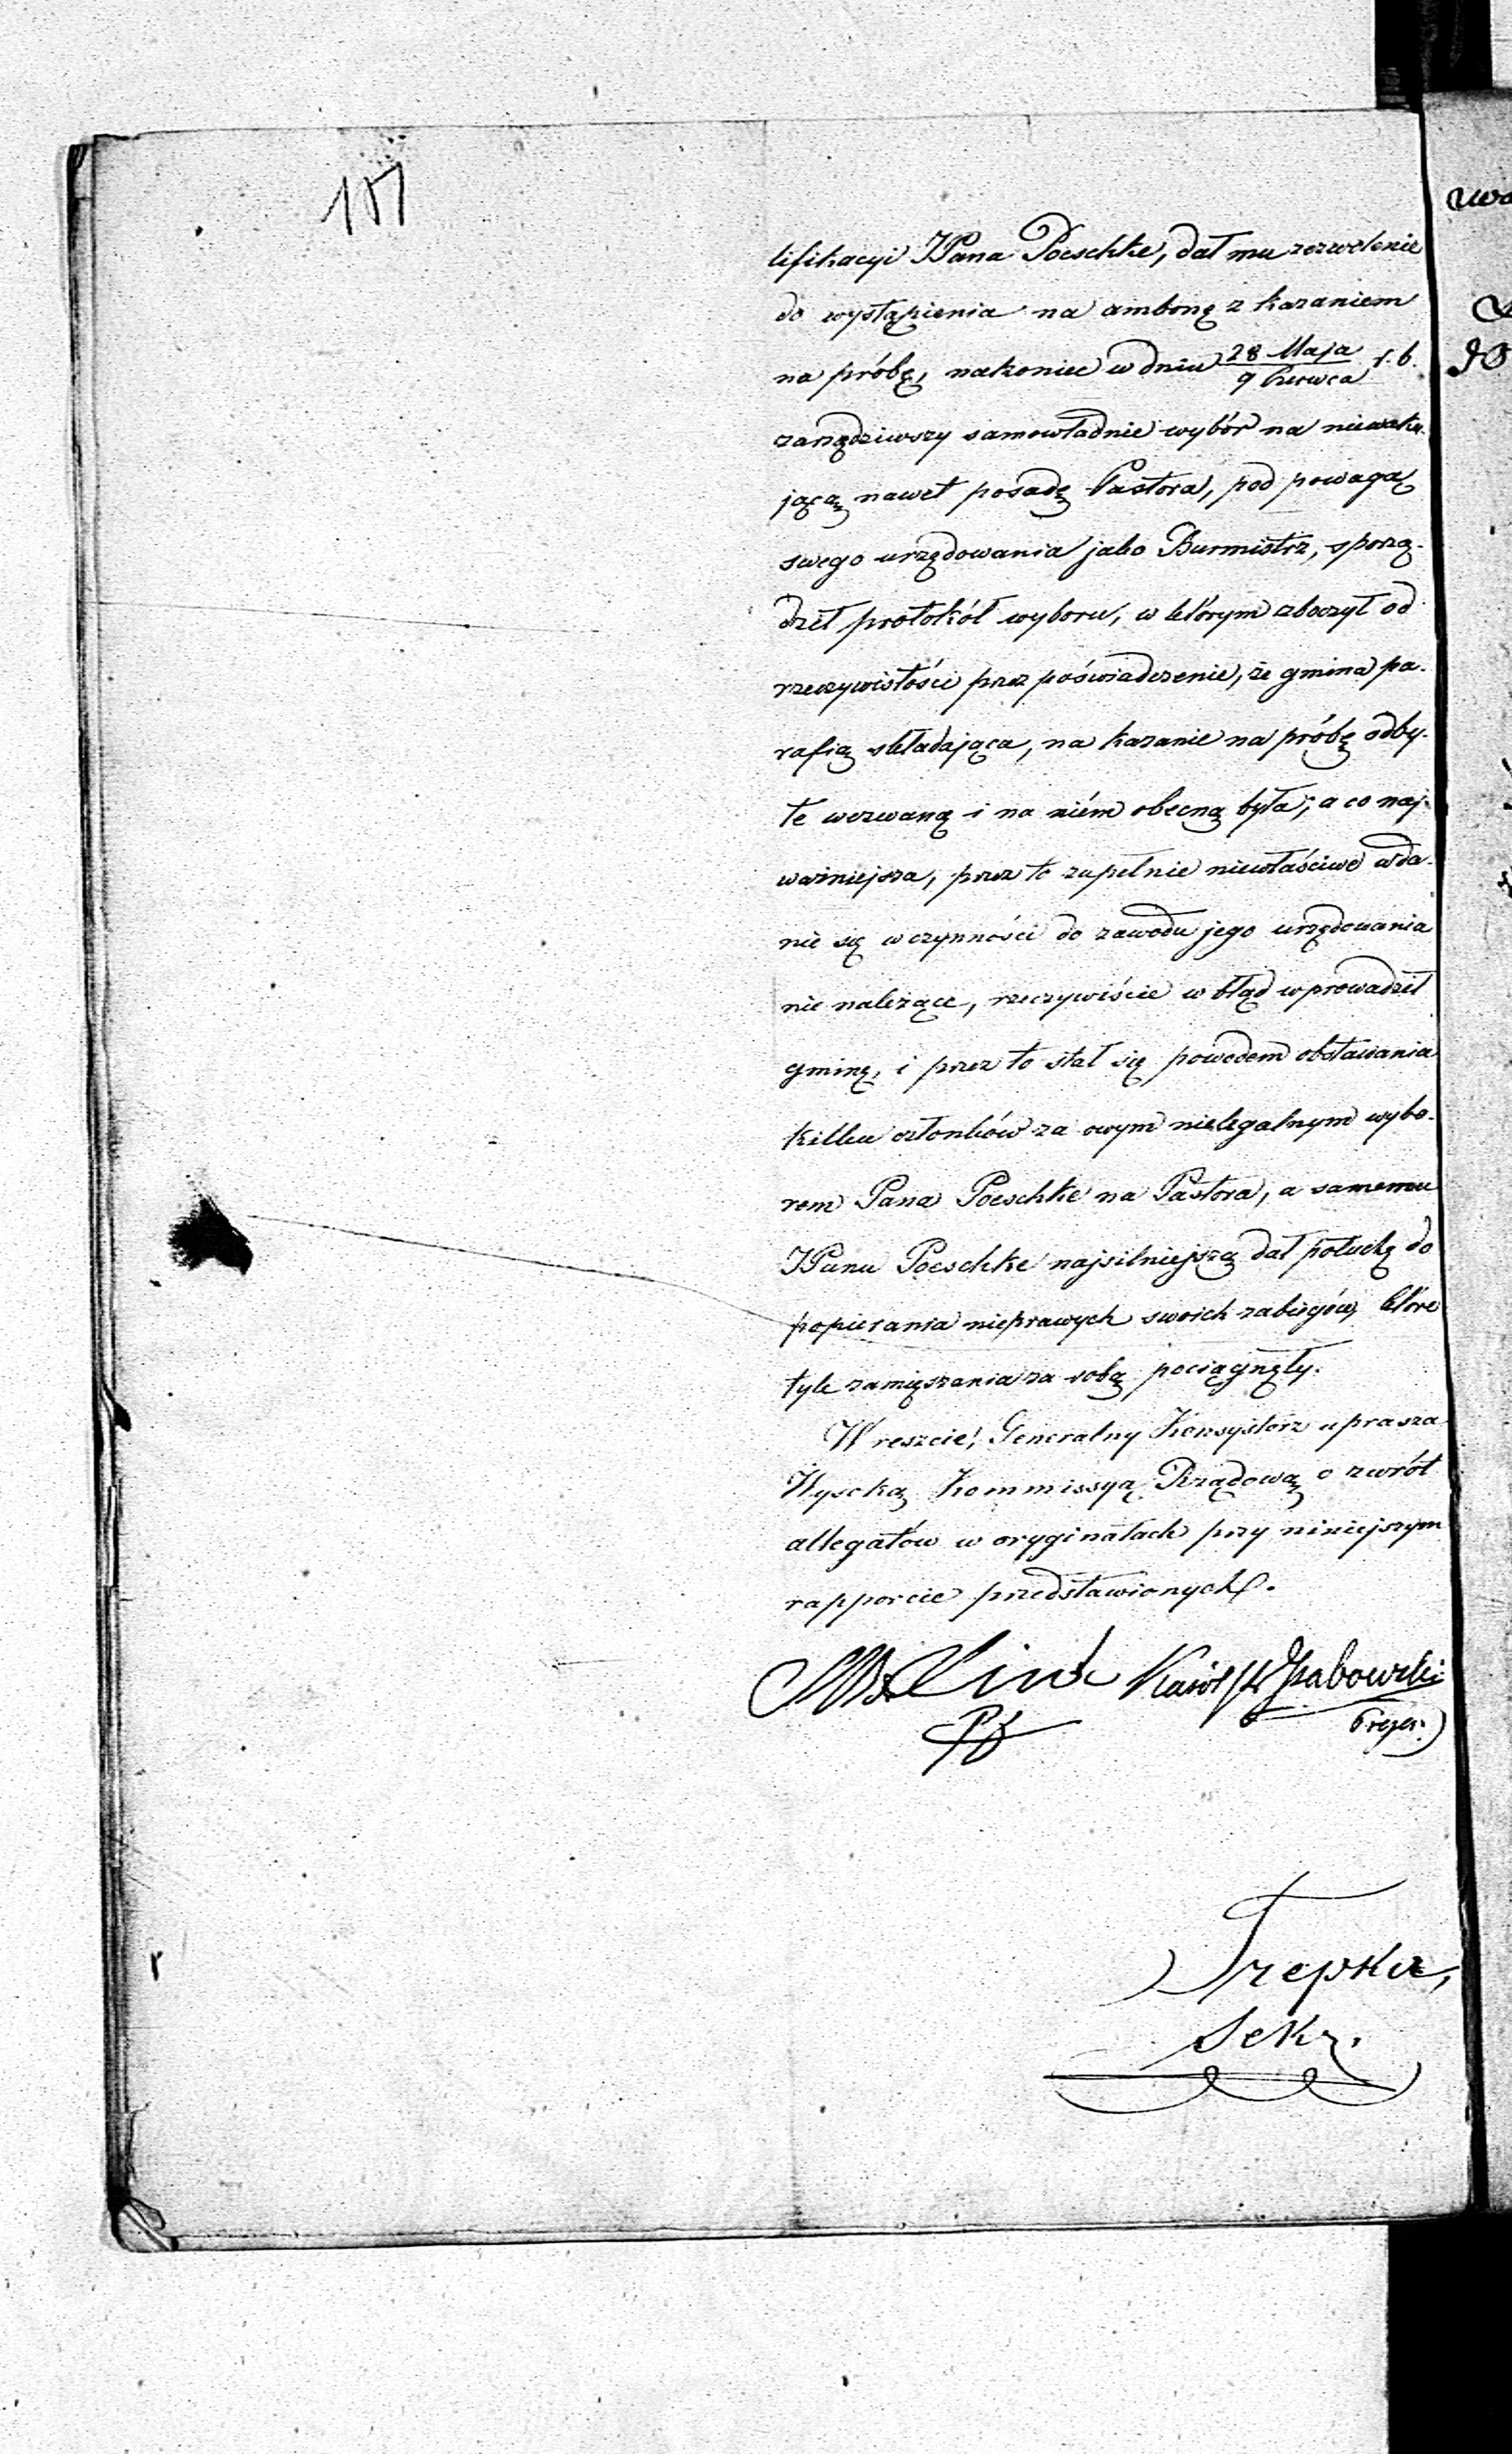 lifikacyi JPana Poeschke, dał mu zezwolenie
do wystąpienia na ambonę z kazaniem
na próbę, nakoniec w dniu 28 Maja / 9 Czerwca r. b.
zarządziwszy samowładnie wybór na niewaku-
jącą nawet posadę Pastora, pod powagą
swego urzędowania jako Burmistrz, sporzą-
dził protokół wyboru, w którym zboczył od
rzeczywistości przez poświadczenie, że gmina pa-
rafią składająca, na kazanie na próbę odby-
te wezwaną i na niém obecną była; a co naj-
ważniejsza, przez to zupełnie niewłaściwe wda-
nie się w czynności do zawodu jego urzędowania
nie należące, rzeczywiście w błąd wprowadził
gminę, i przez to stał się powodem obstawania
kilku członków za owym nielegalnym wybo-
rem Pana Poeschke na Pastora, a samemu
JPanu Poeschke najsilniejszą dał pobudkę do
popierania nieprawych swoich zabiegów, które
tyle zamięszania za sobą pociągnęły.
W reszcie, Generalny Konsystorz uprasza
Wysoką Kommissyą Rządową o zwrót
allegatów w oryginałach przy niniejszym
rapporcie przedstawionych.
Linde Karól Grabowski
Prezes.
Trepka,
Sekr.